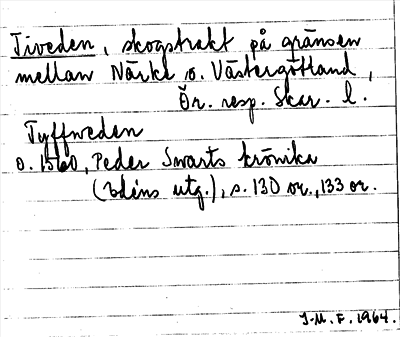 Tiveden, skogstrakt på gränsen
mellan Närke o. Västergötland,
Ör. resp. Skar. l.
Tyffweden
o. 1560, Peder Swarts krönika
(Edéns utg.), s. 130 or., 133 or.
J-M. F. 1964.